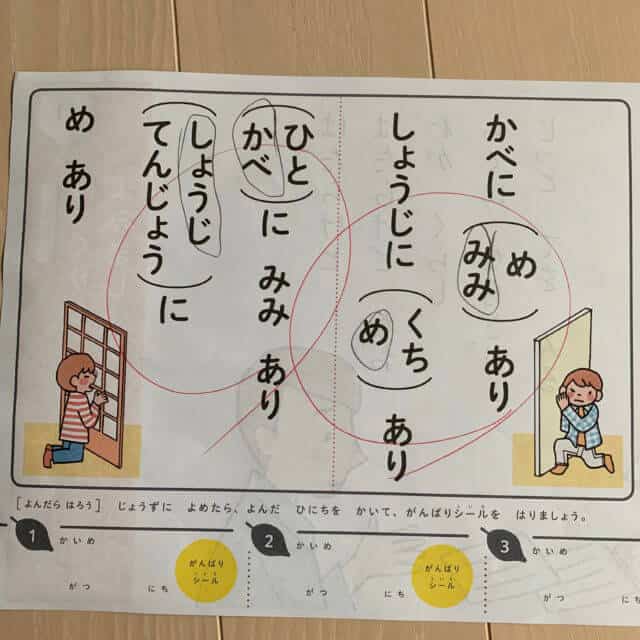 かべに（め　みみ）あり
しょうじに（くち　め）あり
（ひと　かべ）に　みみ　あり
（しょうじ　てんじょう）に
め　あり
[よんだら はろう] じょうずに よめたら、よんだ ひにちを かいて、がんばりシールを はりましょう。
1 かいめ
がつ にち
がんばりシール
2 かいめ
がつ にち
がんばりシール
3 かいめ
がつ にち